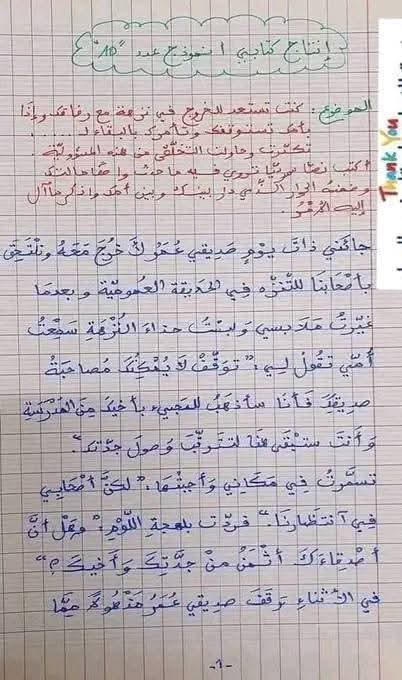 إنتاج كتابي / نموذج عدد "10"
الموضوع: كنت تستعد للخروج في نزهة مع رفاقك وإذا
بأمك تستوقفك وتأمرك بالبقاء لـ ........
تكدّرت وحاولت التخلّص من هذه المسؤوليّة.
أكتب نصّا سرديّا تروي فيه ما حدث واصفا حالتك
وضمّنه الحوار الّذي دار بينك وبين أمّك واذكر ما آل
إليه الموقف.
جاءني ذات يوم صديقي عمر لأخرج معه ونلتحق
بأصحابنا للتنزّه في الحديقة العموميّة وبعدما
غيّرت ملابسي ولبست حذاء النّزهة سمعت
أمّي تقول لي: "توقّف لا يمكنك مصاحبة
صديقك فأنا سأذهب للمجيء بأخيك من المدرسة
وأنت ستبقى هنا لتترقّب وصول جدّتك".
تسمّرت في مكاني وأجبتها: "لكنّ أصحابي
في انتظارنا." فردّت بلهجة اللّوم: "وهل أنّ
أصدقاءك أثمن من جدّتك وأخيك؟"
في الأثناء وقف صديقي عمر مذهولا ممّا
-1-
Thank You